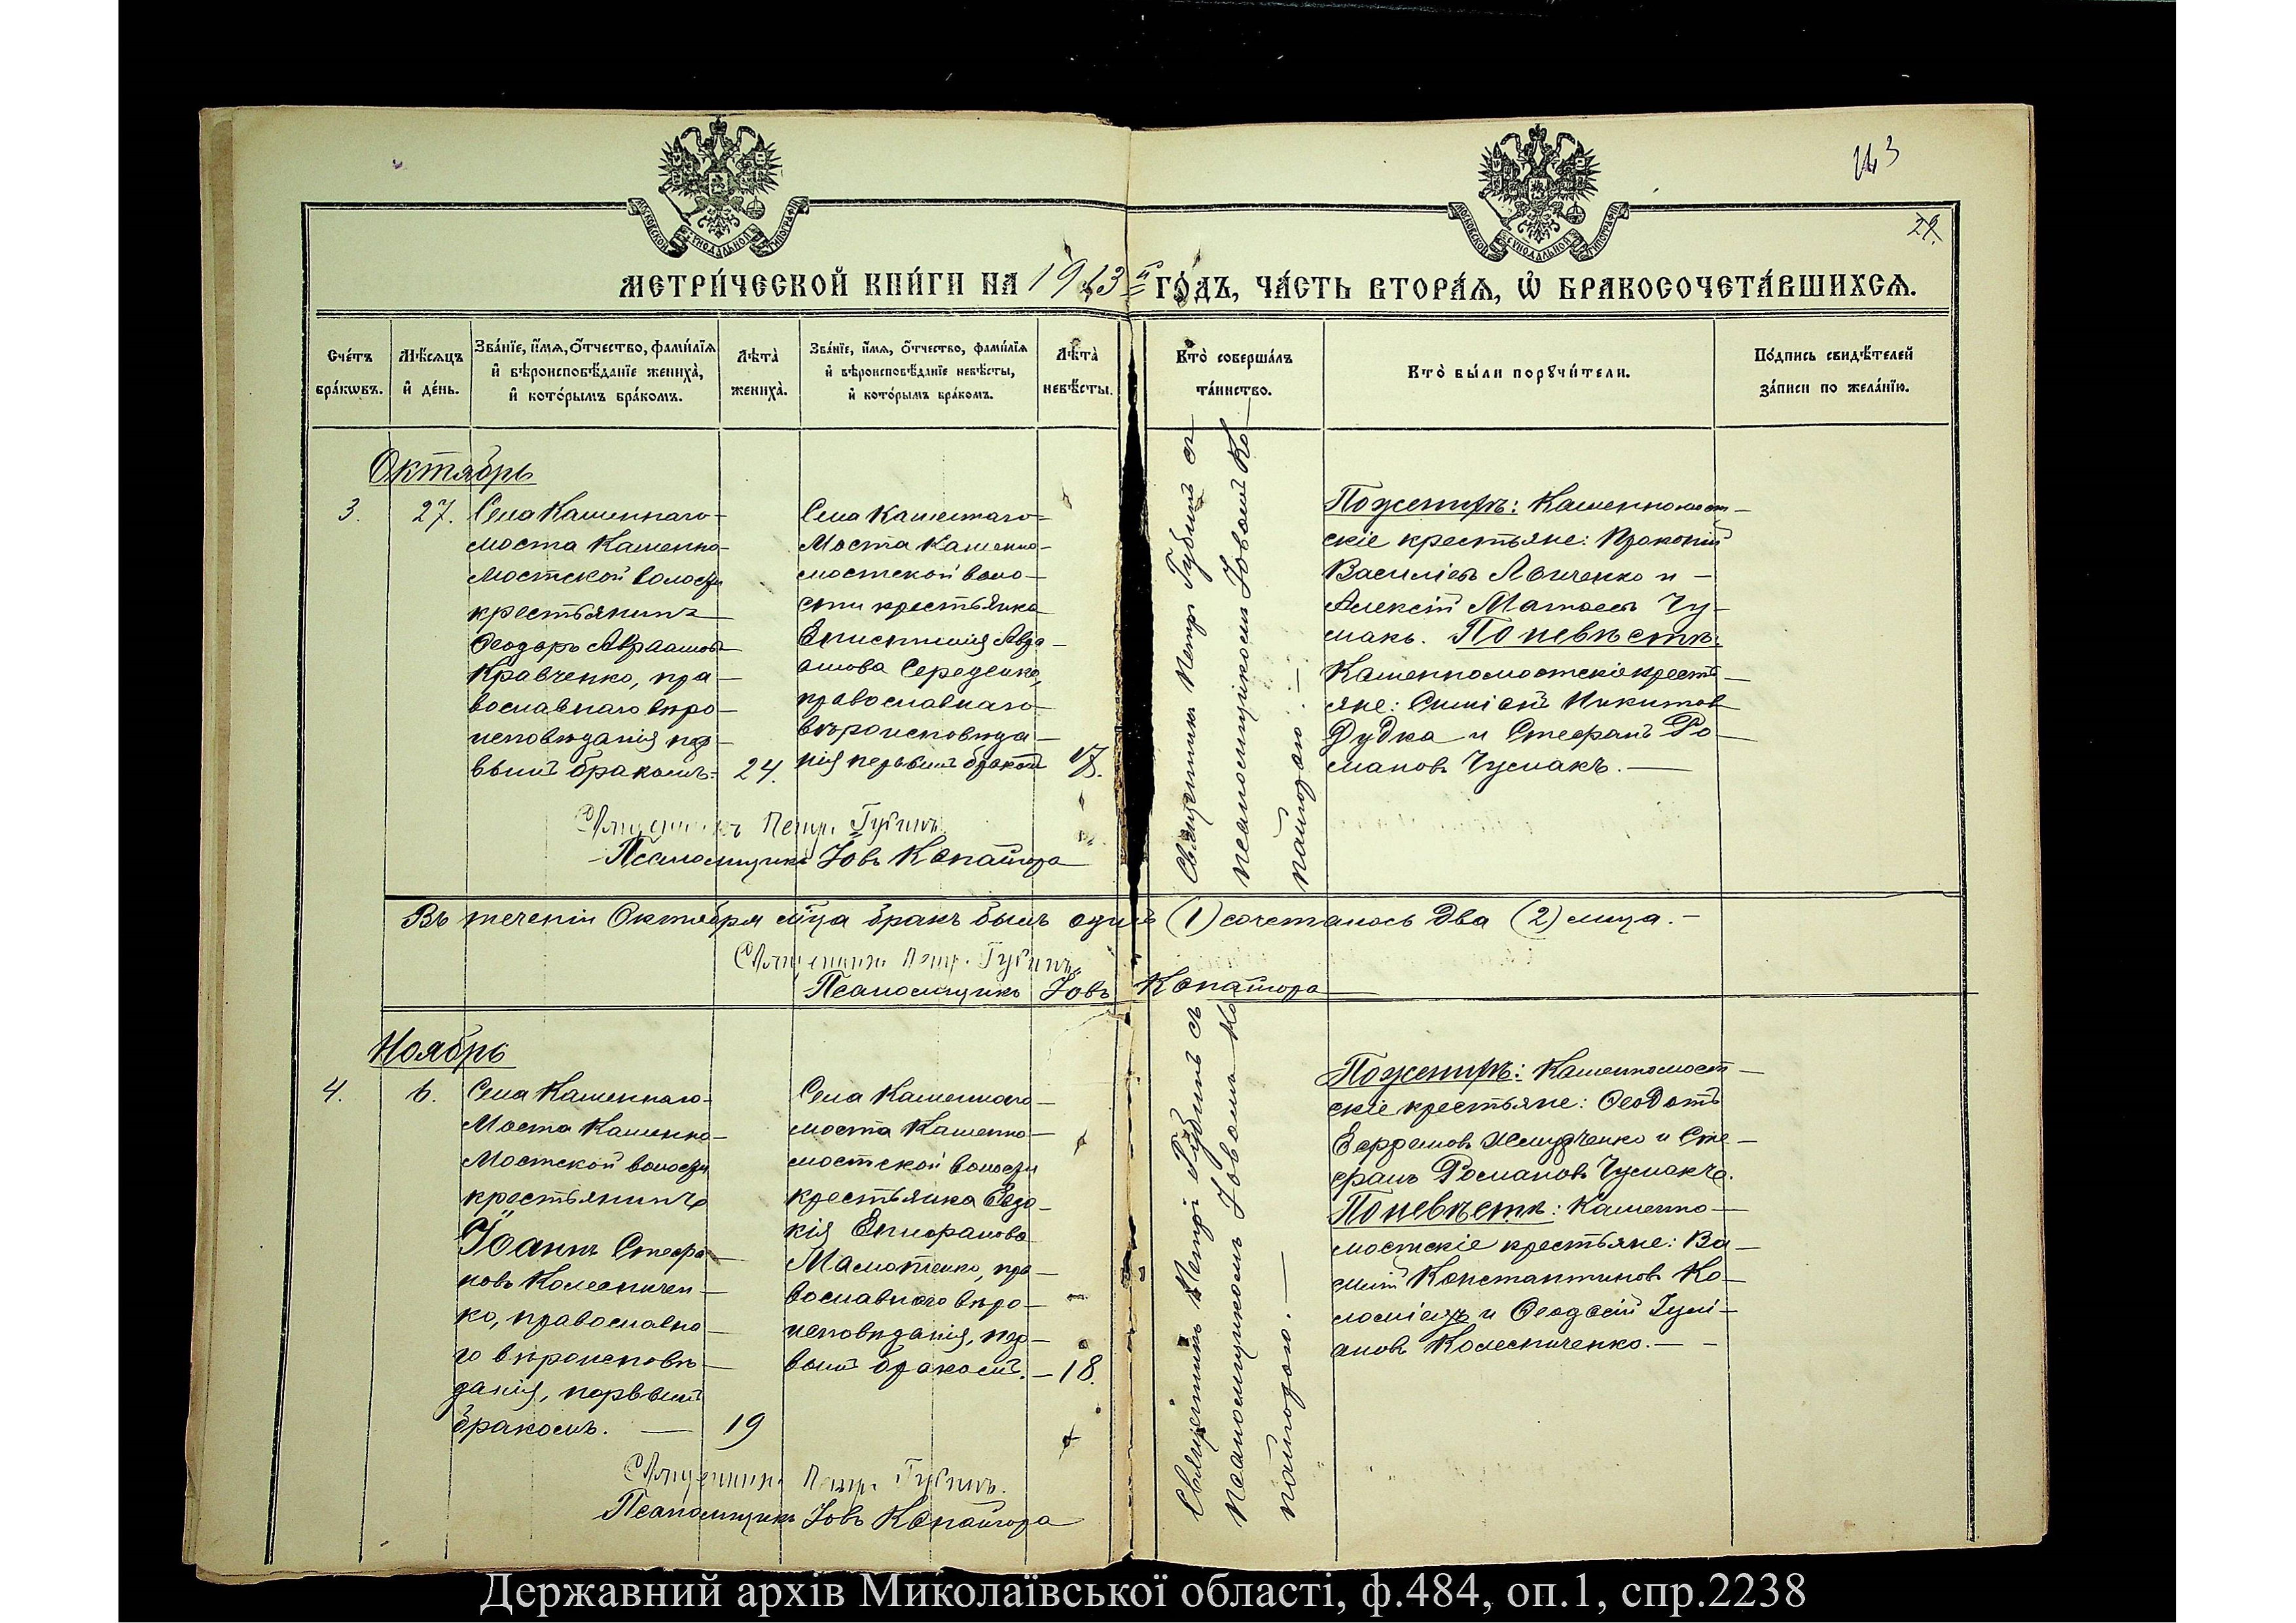 143
29.
МОСКОВСКОЙ СѴНОДАЛЬНОЙ ТИПОГРАФІИ
МОСКОВСКОЙ СѴНОДАЛЬНОЙ ТИПОГРАФІИ
МЕТРИ́ЧЕСКОЙ КНИ́ГИ НА 1913 й ГО́ДЪ, ЧА́СТЬ ВТОРА́Ѧ, Ѡ҆ БРАКОСОЧЕТА́ВШИХСѦ.
Сче́тъ бра́кѡвъ.
Мѣ́сѧцъ и҆ де́нь.
Зва́нїе, и҆́мѧ, ѻ҆́тчество, фами́лїѧ и҆ вѣроисповѣ́данїе жениха̀, и҆ кото́рымъ бра́комъ.
Лѣ́та̀ жениха̀.
Зва́нїе, и҆́мѧ, ѻ҆́тчество, фами́лїѧ и҆ вѣроисповѣ́данїе невѣ́сты, и҆ кото́рымъ бра́комъ.
Лѣ́та̀ невѣ́сты.
Кто̀ соверша́лъ та́инство.
Кто̀ бы́ли порꙋчи́тели.
По́дпись свидѣ́телей за́писи по жела́нїю.
Октябрь
3.
27.
Села Каменнаго-
моста Каменно-
мостской волости
крестьянинъ
Ѳеодоръ Авраамовъ
Кравченко, пра-
вославнаго вѣро-
исповѣданія пер-
вымъ бракомъ.
24.
Села Каменнаго-
Моста Каменно-
мостской воло-
сти крестьянка
Епистимія Авра-
амова Середенко,
православнаго
вѣроисповѣда-
нія первымъ бракомъ
17.
Священникъ Петръ Губинъ съ
псаломщикомъ Іовомъ Ко-
пайгорою. —
По женихѣ: Каменномост-
скіе крестьяне: Прокопій
Василіевъ и —
Алексій Чу-
макъ. По невѣстѣ:
Каменномостскіе кресть-
яне: Никитовъ
Дудка и Стефанъ Ро-
мановъ Чумакъ. —
Священникъ Петръ Губинъ
Псаломщикъ Іовъ Копайгора
Въ теченіи Октября м-ца бракъ былъ одинъ (1) сочеталось два (2) лица. —
Священникъ Петръ Губинъ
Псаломщикъ Іовъ Копайгора
Ноябрь
4.
6.
Села Каменнаго-
Моста Каменно-
Мостской волости
крестьянинъ
Іоаннъ Стефа-
новъ Колесничен-
ко, православна-
го вѣроисповѣ-
данія, первымъ
бракомъ. —
19
Села Каменнаго
моста Каменно-
мостской волости
крестьянка Евдо-
кія Епифанова
пра-
вославнаго вѣро-
исповѣданія, пер-
вымъ бракомъ. —
18.
Священникъ Петръ Губинъ съ
Псаломщикомъ Іовомъ Ко-
пайгорою. —
По женихѣ: Каменномост-
скіе крестьяне: Ѳеодотъ
Ефремовъ и Сте-
фанъ Романовъ Чумакъ.
По невѣстѣ: Каменно-
мостскіе крестьяне: Ва-
силій Константиновъ Ко-
и Ѳеодосій Іулі-
ановъ Колесниченко. —
Священникъ Петръ Губинъ.
Псаломщикъ Іовъ Копайгора
Державний архів Миколаївської області, ф.484, оп.1, спр.2238